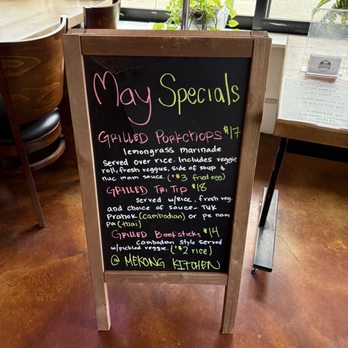 May Specials
GRILLED PORKCHOPS $17
lemongrass marinade
served over rice. Includes veggie
roll, fresh veggies, side of soup &
nuc mam sauce. (+$3 fried egg)
GRILLED TRI TIP $18
served w/rice, fresh veg.
and choice of sauce- TUK
Prahok (cambodian) or pa nam
pa (thai)
GRILLED Beefsticks $14
cambodian style served
w/pickled veggie. (+$2 rice)
@ MEKONG KITCHEN